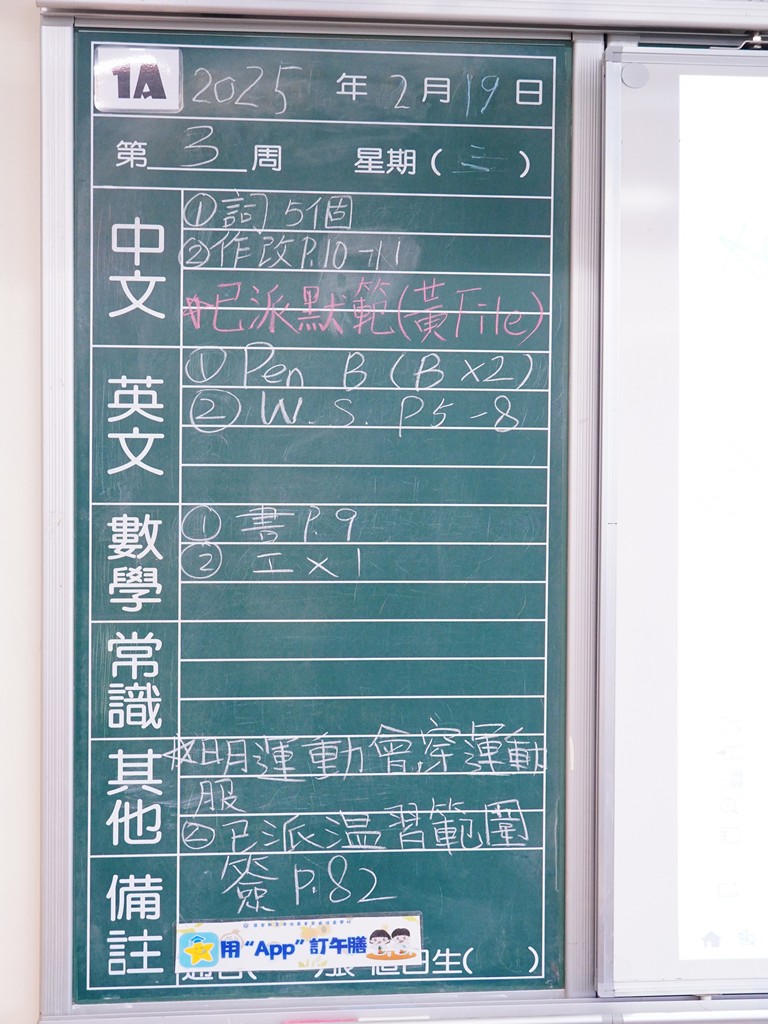 1A 2025 年 2 月 19 日
第 3 周 星期 ( 三 )
中文
① 詞 5個
② 作改 P.10-11
☆已派默範(黃File)
英文
① Pen B (B x2)
② W.S. P5-8
數學
① 書 P.9
② 工 x 1
常識
其他
☆明運動會,穿運動
服
② 已派温習範圍
備註
簽 P.82
用 “App” 訂午膳
值日生( )